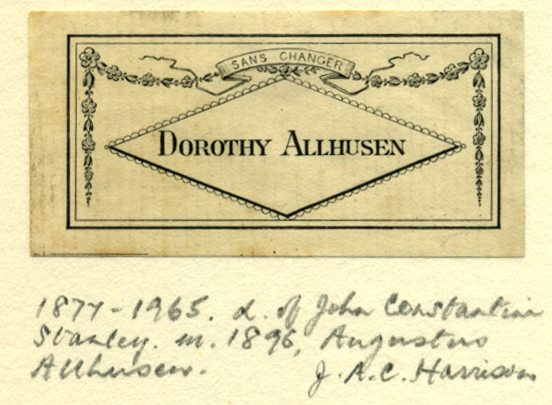 SANS CHANGER
DOROTHY ALLHUSEN
1877-1965. d. of John Constantine
Stanley. m. 1896, Augustus
Allhusen. J. A. C. Harrison